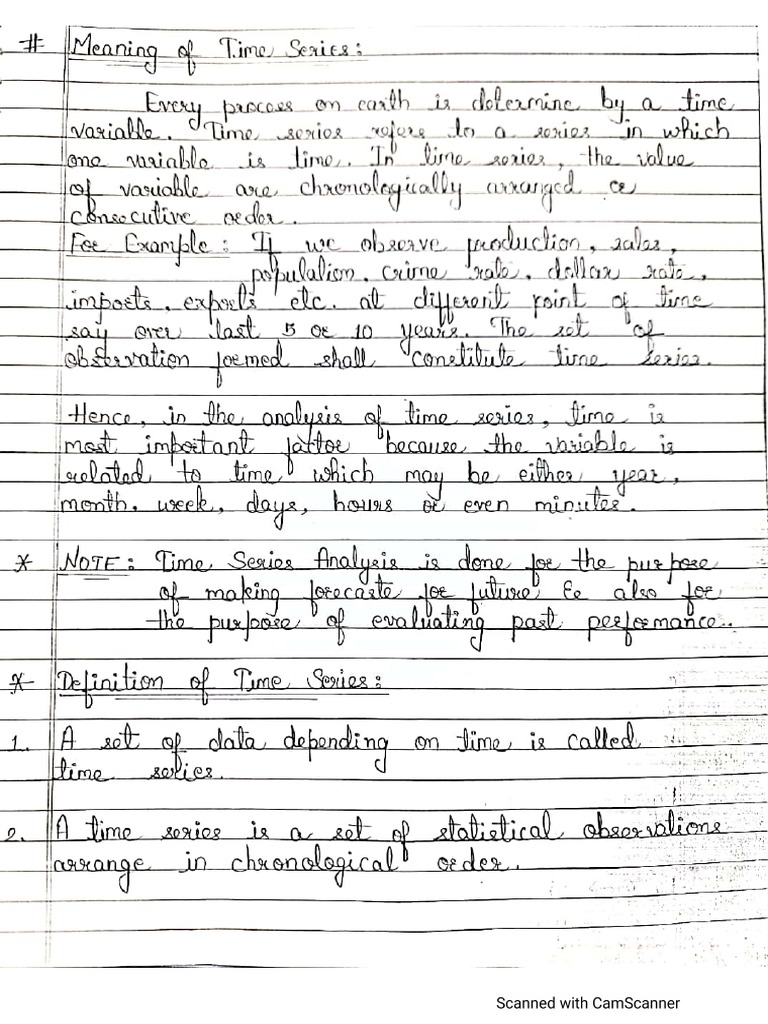 # Meaning of Time Series:
Every process on earth is determine by a time
variable. Time series refers to a series in which
one variable is time. In time series, the value
of variable are chronologically arranged or
consecutive order.
For Example: If we observe production, sales,
population, crime rate, dollar rate,
imports, exports etc. at different point of time
say over last 5 or 10 years. The set of
observation formed shall constitute time series.
Hence, in the analysis of time series, time is
most important fattor because the variable is
related to time which may be either year,
month, week, days, hours or even minutes.
* NOTE: Time Series Analysis is done for the purpose
of making forecaste for future & also for
the purpose of evaluating past performance.
* Definition of Time Series:
1. A set of data depending on time is called
time series.
2. A time series is a set of statistical observations
arrange in chronological order.
Scanned with CamScanner